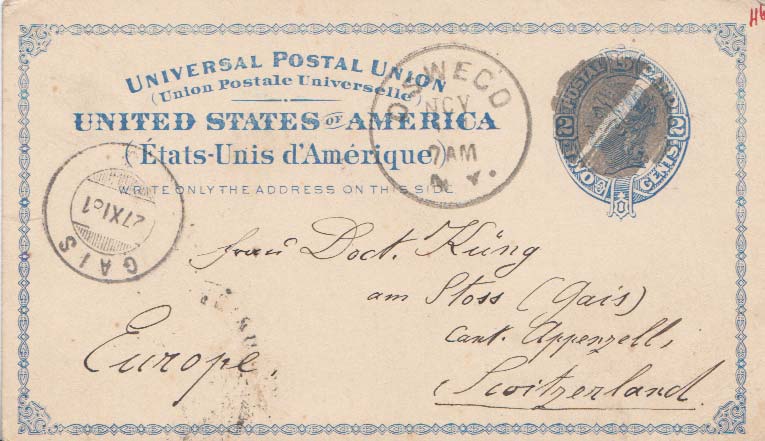 UNIVERSAL POSTAL UNION
(Union Postale Universelle)
UNITED STATES OF AMERICA
(États-Unis d'Amérique)
WRITE ONLY THE ADDRESS ON THIS SIDE
OSWEGO
NOV
AM
N.Y.
POSTAL CARD
2 2
TWO CENTS
GAIS
27 XI 81
Frau Doct. Küng
am Stoss (Gais)
Cant. Appenzell,
Switzerland.
Europe.